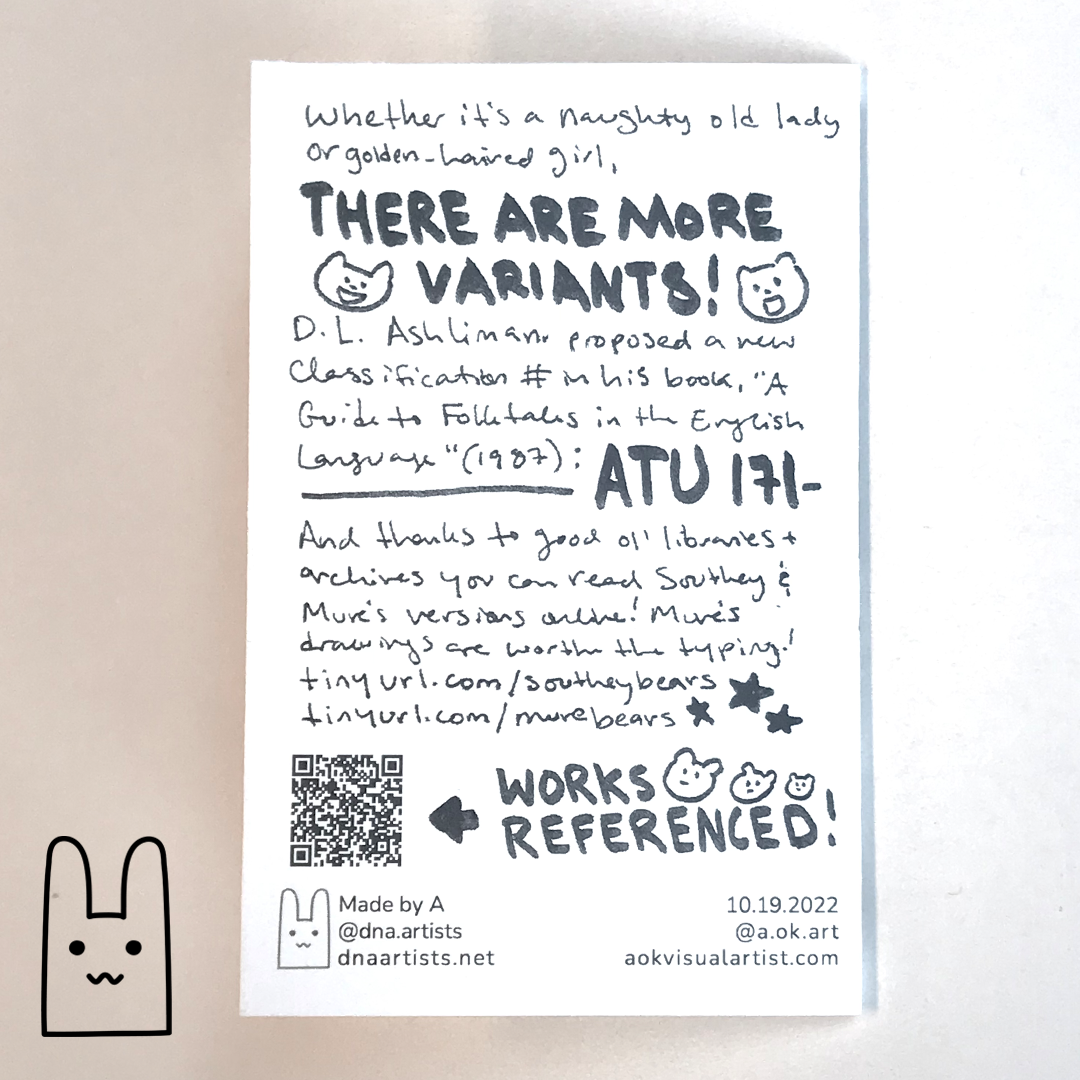 Whether it's a naughty old lady
or golden-haired girl,
THERE ARE MORE
VARIANTS!
D.L. Ashliman proposed a new
Classification # in his book, "A
Guide to Folktales in the English
Language" (1987): ATU 171-
And thanks to good ol' libraries +
archives you can read Southey &
Mure's versions online! Mure's
drawings are worth the typing!
tinyurl.com/southeybears
tinyurl.com/murebears
WORKS
REFERENCED!
Made by A
@dna.artists
dnaartists.net
10.19.2022
@a.ok.art
aokvisualartist.com